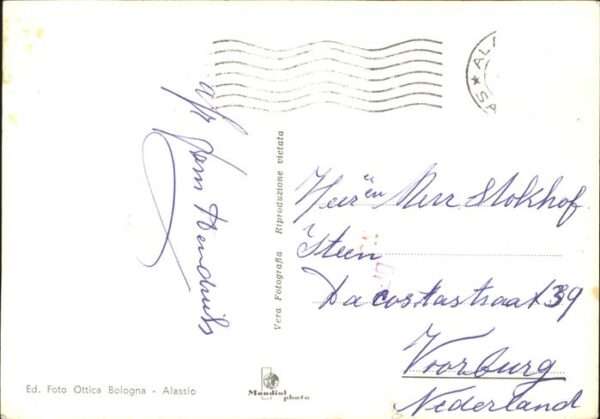 Jem Hendriks
Vera Fotografia Riproduzione vietata
AL
SA
Heer en Mevr. Stokhof
Steen
Dacostastraat 39
Voorburg
Nederland
Ed. Foto Ottica Bologna - Alassio
Mondial
photo